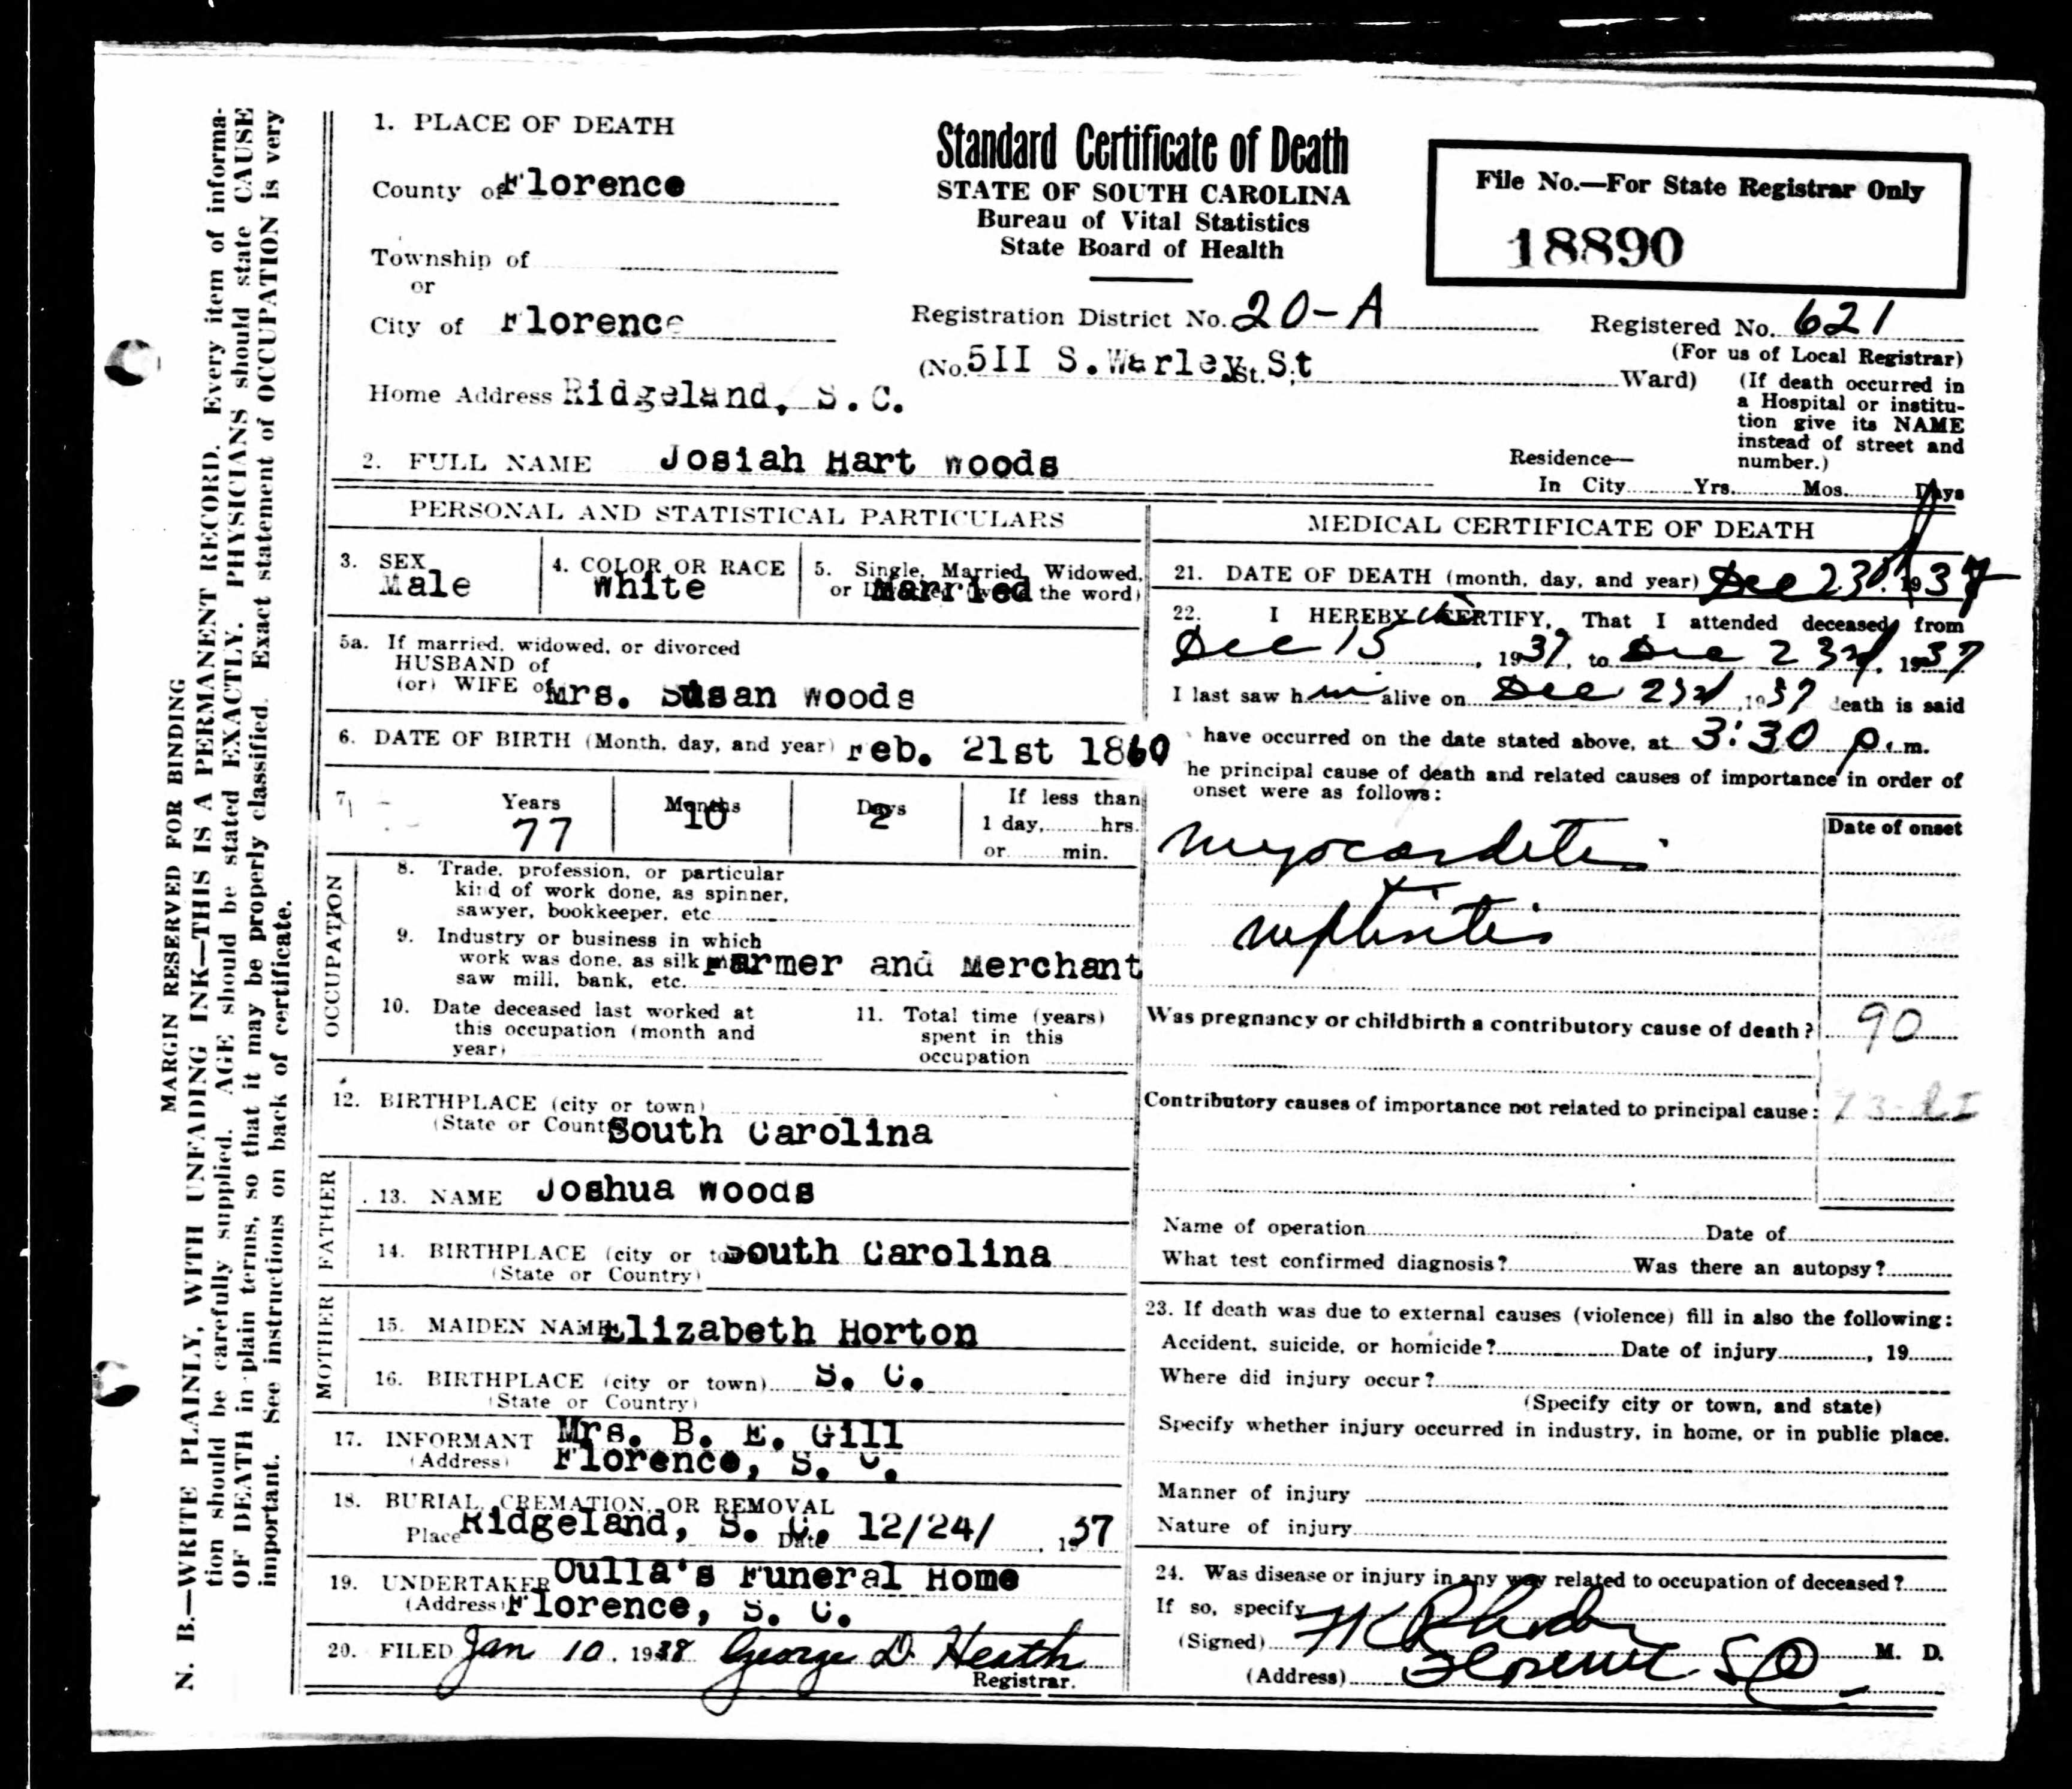 MARGIN RESERVED FOR BINDING
N. B.—WRITE PLAINLY, WITH UNFADING INK—THIS IS A PERMANENT RECORD. Every item of informa-
tion should be carefully supplied. AGE should be stated EXACTLY. PHYSICIANS should state CAUSE
OF DEATH in plain terms, so that it may be properly classified. Exact statement of OCCUPATION is very
important. See instructions on back of certificate.
1. PLACE OF DEATH
County of Florence
Township of
or
City of Florence
Home Address Ridgeland, S.C.
Standard Certificate of Death
STATE OF SOUTH CAROLINA
Bureau of Vital Statistics
State Board of Health
File No.—For State Registrar Only
18890
Registration District No. 20-A
Registered No. 621
(For us of Local Registrar)
(No. 5II S. Warley St. St; Ward)
(If death occurred in
a Hospital or institu-
tion give its NAME
instead of street and
number.)
2. FULL NAME Josiah Hart Woods
Residence—
In City Yrs. Mos. Days
PERSONAL AND STATISTICAL PARTICULARS
3. SEX
Male
4. COLOR OR RACE
White
5. Single, Married, Widowed,
or Divorced (write the word)
Married
5a. If married, widowed, or divorced
HUSBAND of
(or) WIFE of Mrs. Susan Woods
6. DATE OF BIRTH (Month, day, and year) Feb. 21st 1860
7. Years Months Days If less than
77 10 2 1 day, hrs.
or min.
OCCUPATION
8. Trade, profession, or particular
kind of work done, as spinner,
sawyer, bookkeeper, etc.
9. Industry or business in which
work was done, as silk mill,
saw mill, bank, etc. Farmer and Merchant
10. Date deceased last worked at
this occupation (month and
year)
11. Total time (years)
spent in this
occupation
12. BIRTHPLACE (city or town)
(State or Country) South Carolina
FATHER
13. NAME Joshua Woods
14. BIRTHPLACE (city or town) South Carolina
(State or Country)
MOTHER
15. MAIDEN NAME Elizabeth Horton
16. BIRTHPLACE (city or town) S. C.
(State or Country)
17. INFORMANT Mrs. B. E. Gill
(Address) Florence, S. C.
18. BURIAL, CREMATION, OR REMOVAL
Place Ridgeland, S. C. Date 12/24/, 1937
19. UNDERTAKER Oulla's Funeral Home
(Address) Florence, S. C.
20. FILED Jan 10, 1938 George D. Heath
Registrar.
MEDICAL CERTIFICATE OF DEATH
21. DATE OF DEATH (month, day, and year) Dec 23d. 1937
22. I HEREBY CERTIFY, That I attended deceased from
Dec 15, 1937, to Dec 23rd, 1937
I last saw him alive on Dec 23d, 1937 death is said
have occurred on the date stated above, at 3:30 p. m.
he principal cause of death and related causes of importance in order of
onset were as follows:
Date of onset
myocarditis
nephritis
Was pregnancy or childbirth a contributory cause of death? 90
Contributory causes of importance not related to principal cause:
Name of operation Date of
What test confirmed diagnosis? Was there an autopsy?
23. If death was due to external causes (violence) fill in also the following:
Accident, suicide, or homicide? Date of injury, 19
Where did injury occur?
(Specify city or town, and state)
Specify whether injury occurred in industry, in home, or in public place.
Manner of injury
Nature of injury
24. Was disease or injury in any way related to occupation of deceased?
If so, specify
(Signed) M. D.
(Address) Florence SC